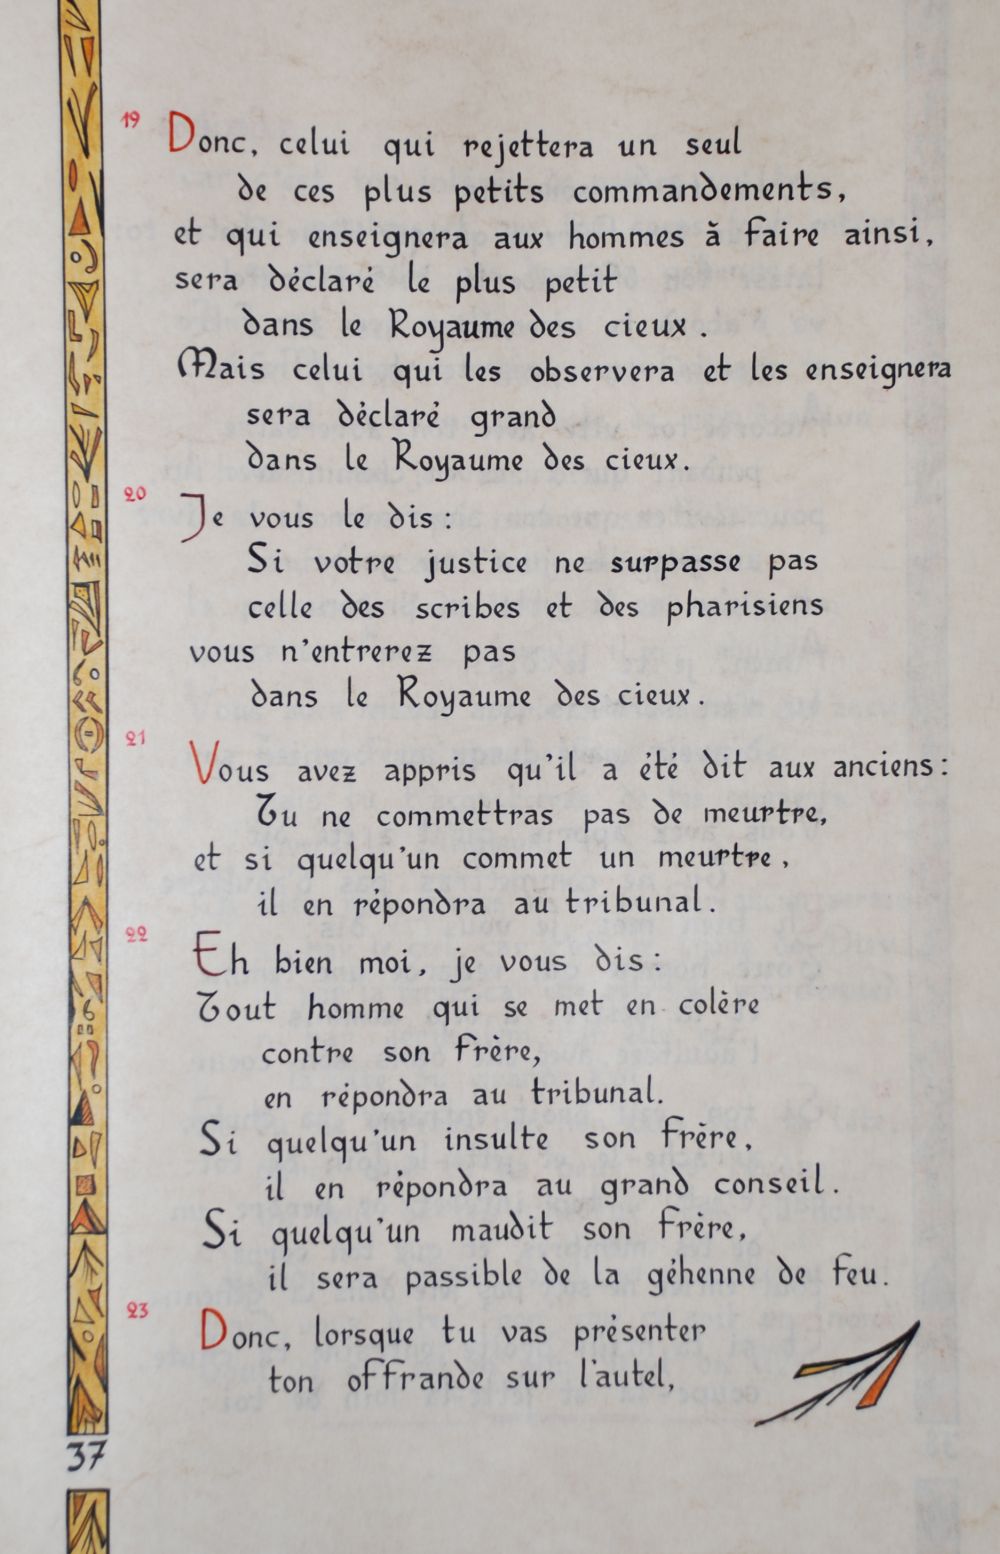 19
Donc, celui qui rejettera un seul
de ces plus petits commandements,
et qui enseignera aux hommes à faire ainsi,
sera déclaré le plus petit
dans le Royaume des cieux.
Mais celui qui les observera et les enseignera
sera déclaré grand
dans le Royaume des cieux.
20
Je vous le dis :
Si votre justice ne surpasse pas
celle des scribes et des pharisiens
vous n'entrerez pas
dans le Royaume des cieux.
21
Vous avez appris qu'il a été dit aux anciens :
Tu ne commettras pas de meurtre,
et si quelqu'un commet un meurtre,
il en répondra au tribunal.
22
Eh bien moi, je vous dis :
Tout homme qui se met en colère
contre son frère,
en répondra au tribunal.
Si quelqu'un insulte son frère,
il en répondra au grand conseil.
Si quelqu'un maudit son frère,
il sera passible de la géhenne de feu.
23
Donc, lorsque tu vas présenter
ton offrande sur l'autel,
37